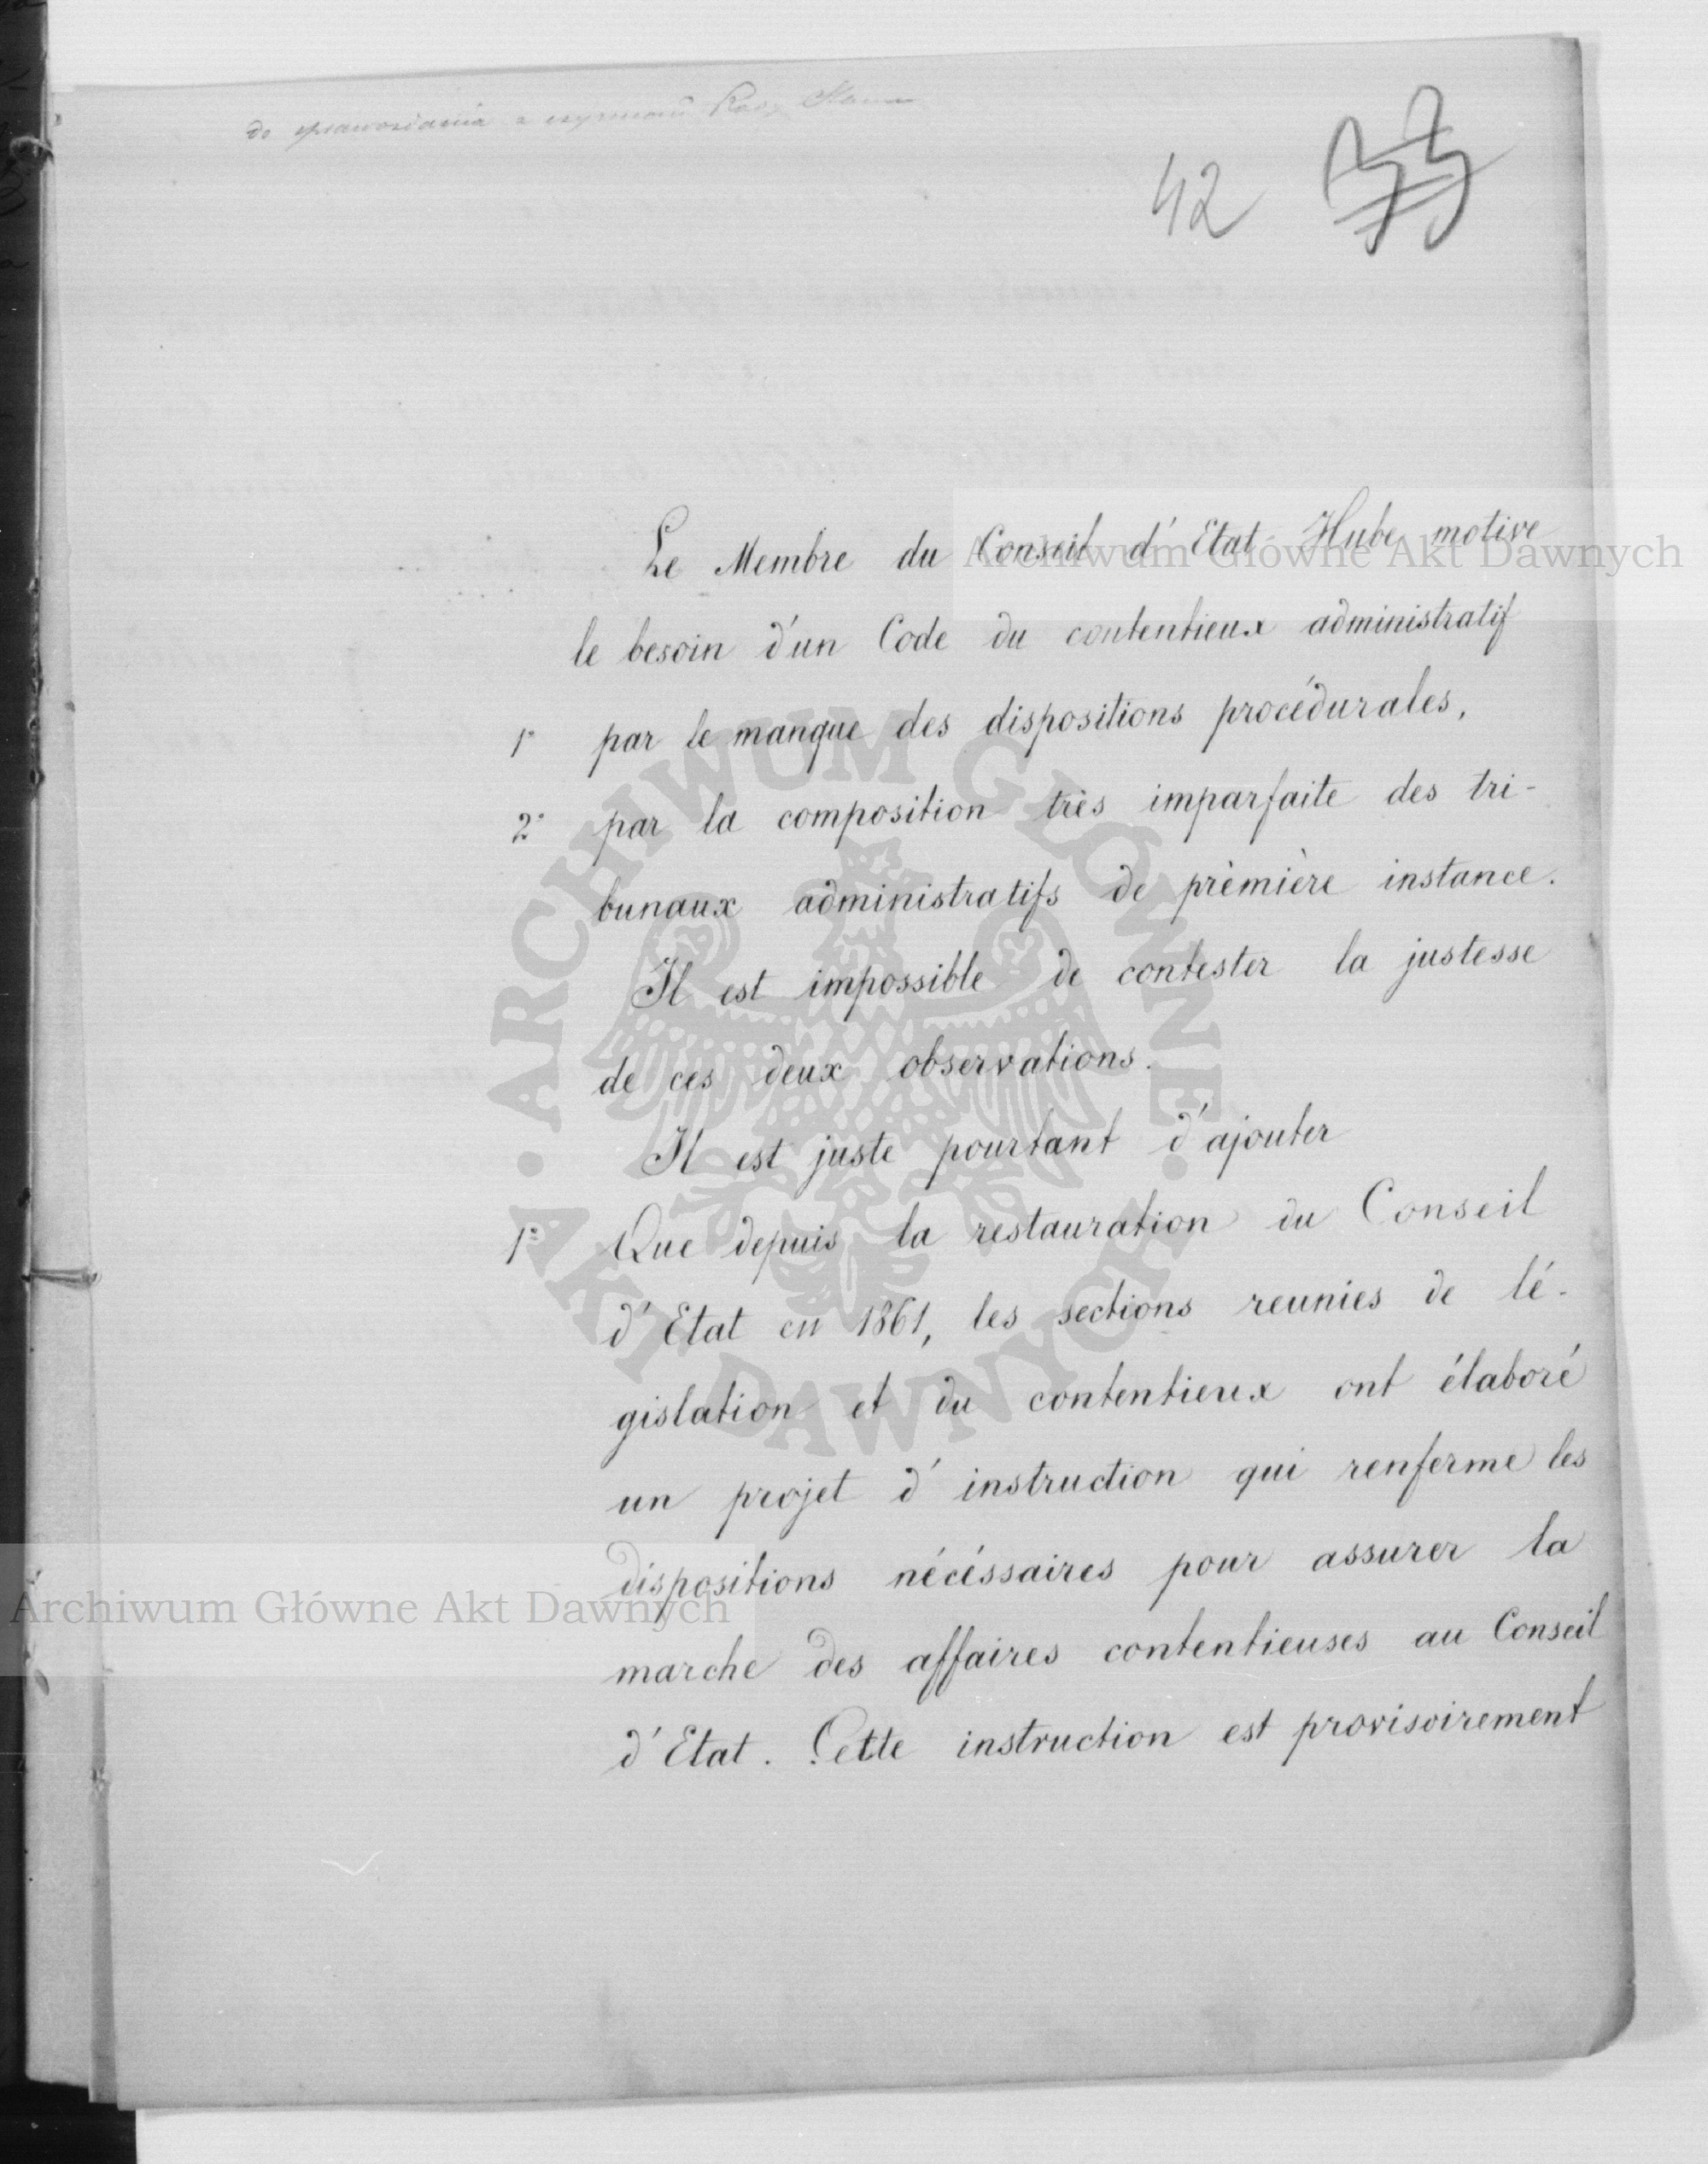 do sprawozdania z czynności Rady Stanu
42
Le Membre du Conseil d'Etat Hube motive
le besoin d'un Code du contentieux administratif
1° par le manque des dispositions procédurales,
2° par la composition très imparfaite des tri-
bunaux administratifs de prèmière instance.
Il est impossible de contester la justesse
de ces deux observations.
Il est juste pourtant d'ajouter
1° Que depuis la restauration du Conseil
d'Etat en 1861, les sections reunies de lé-
gislation et du contentieux ont élaboré
un projet d'instruction qui renferme les
dispositions nécéssaires pour assurer la
marche des affaires contentieuses au Conseil
d'Etat. Cette instruction est provisoirement
Archiwum Główne Akt Dawnych
Archiwum Główne Akt Dawnych
ARCHIWUM GŁÓWNE AKT DAWNYCH